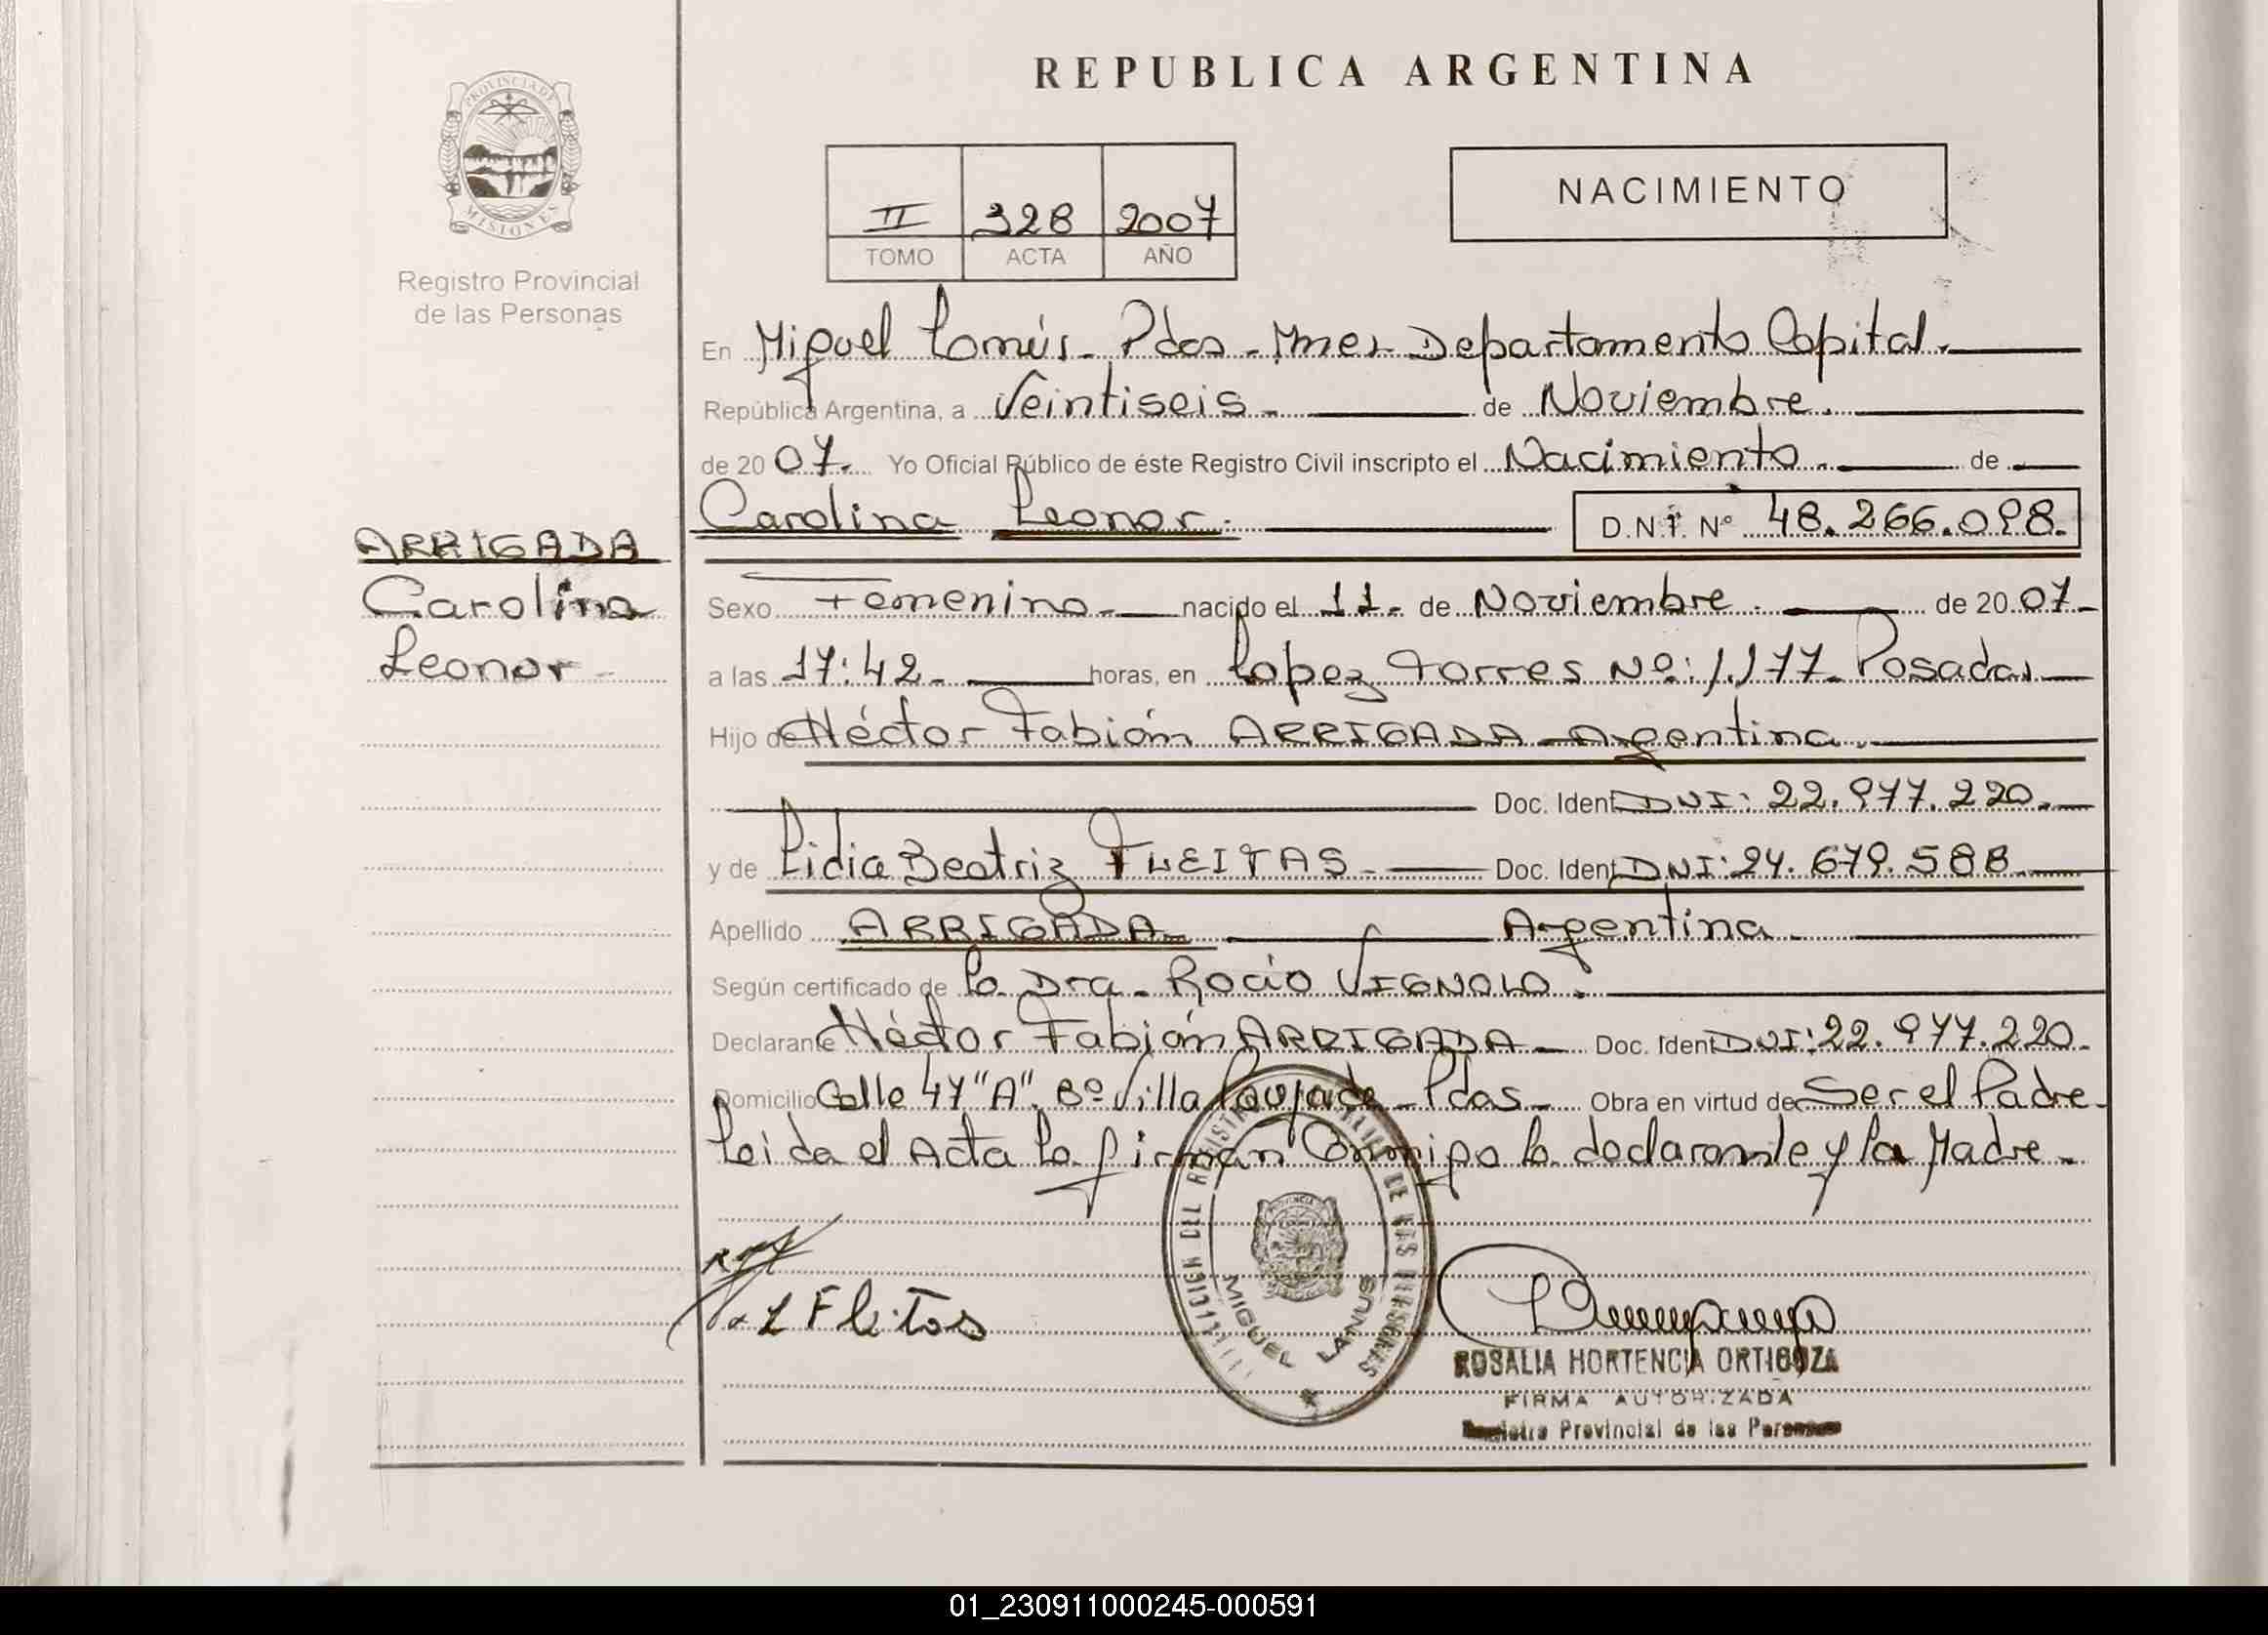 REPUBLICA ARGENTINA
PROVINCIA DE
MISIONES
Registro Provincial
de las Personas
II 328 2007
TOMO ACTA AÑO
NACIMIENTO
En Miguel Lanús - Pdas - Mnes - Departamento Capital.
República Argentina, a Veintiseis - de Noviembre.
de 2007. Yo Oficial Público de éste Registro Civil inscripto el Nacimiento. de
Carolina Leonor. D.N.I. Nº 48.266.098.
ARRIGADA
Carolina
Leonor -
Sexo Femenino - nacido el 11 - de Noviembre. de 2007 -
a las 17:42 - horas, en Lopez Torres Nº: 1.177 - Posadas
Hijo de Héctor Fabián ARRIGADA - Argentina.
Doc. Ident DNI: 22.977.220. -
y de Lidia Beatriz FLEITAS - Doc. Ident DNI: 24.679.588.
Apellido ARRIGADA - Argentina.
Según certificado de la Dra. Rocio VIGNOLO.
Declarante Héctor Fabián ARRIGADA - Doc. Ident DNI: 22.977.220 -
Domicilio Calle 47 "A". Bº Villa Poujade - Pdas - Obra en virtud de Ser el Padre -
Leida el Acta la firman Conmigo la declarante y la Madre -
L Fleitas
MIGUEL LANUS
ROSALIA HORTENCIA ORTIGOZA
FIRMA AUTORIZADA
Registro Provincial de las Personas
01_230911000245-000591